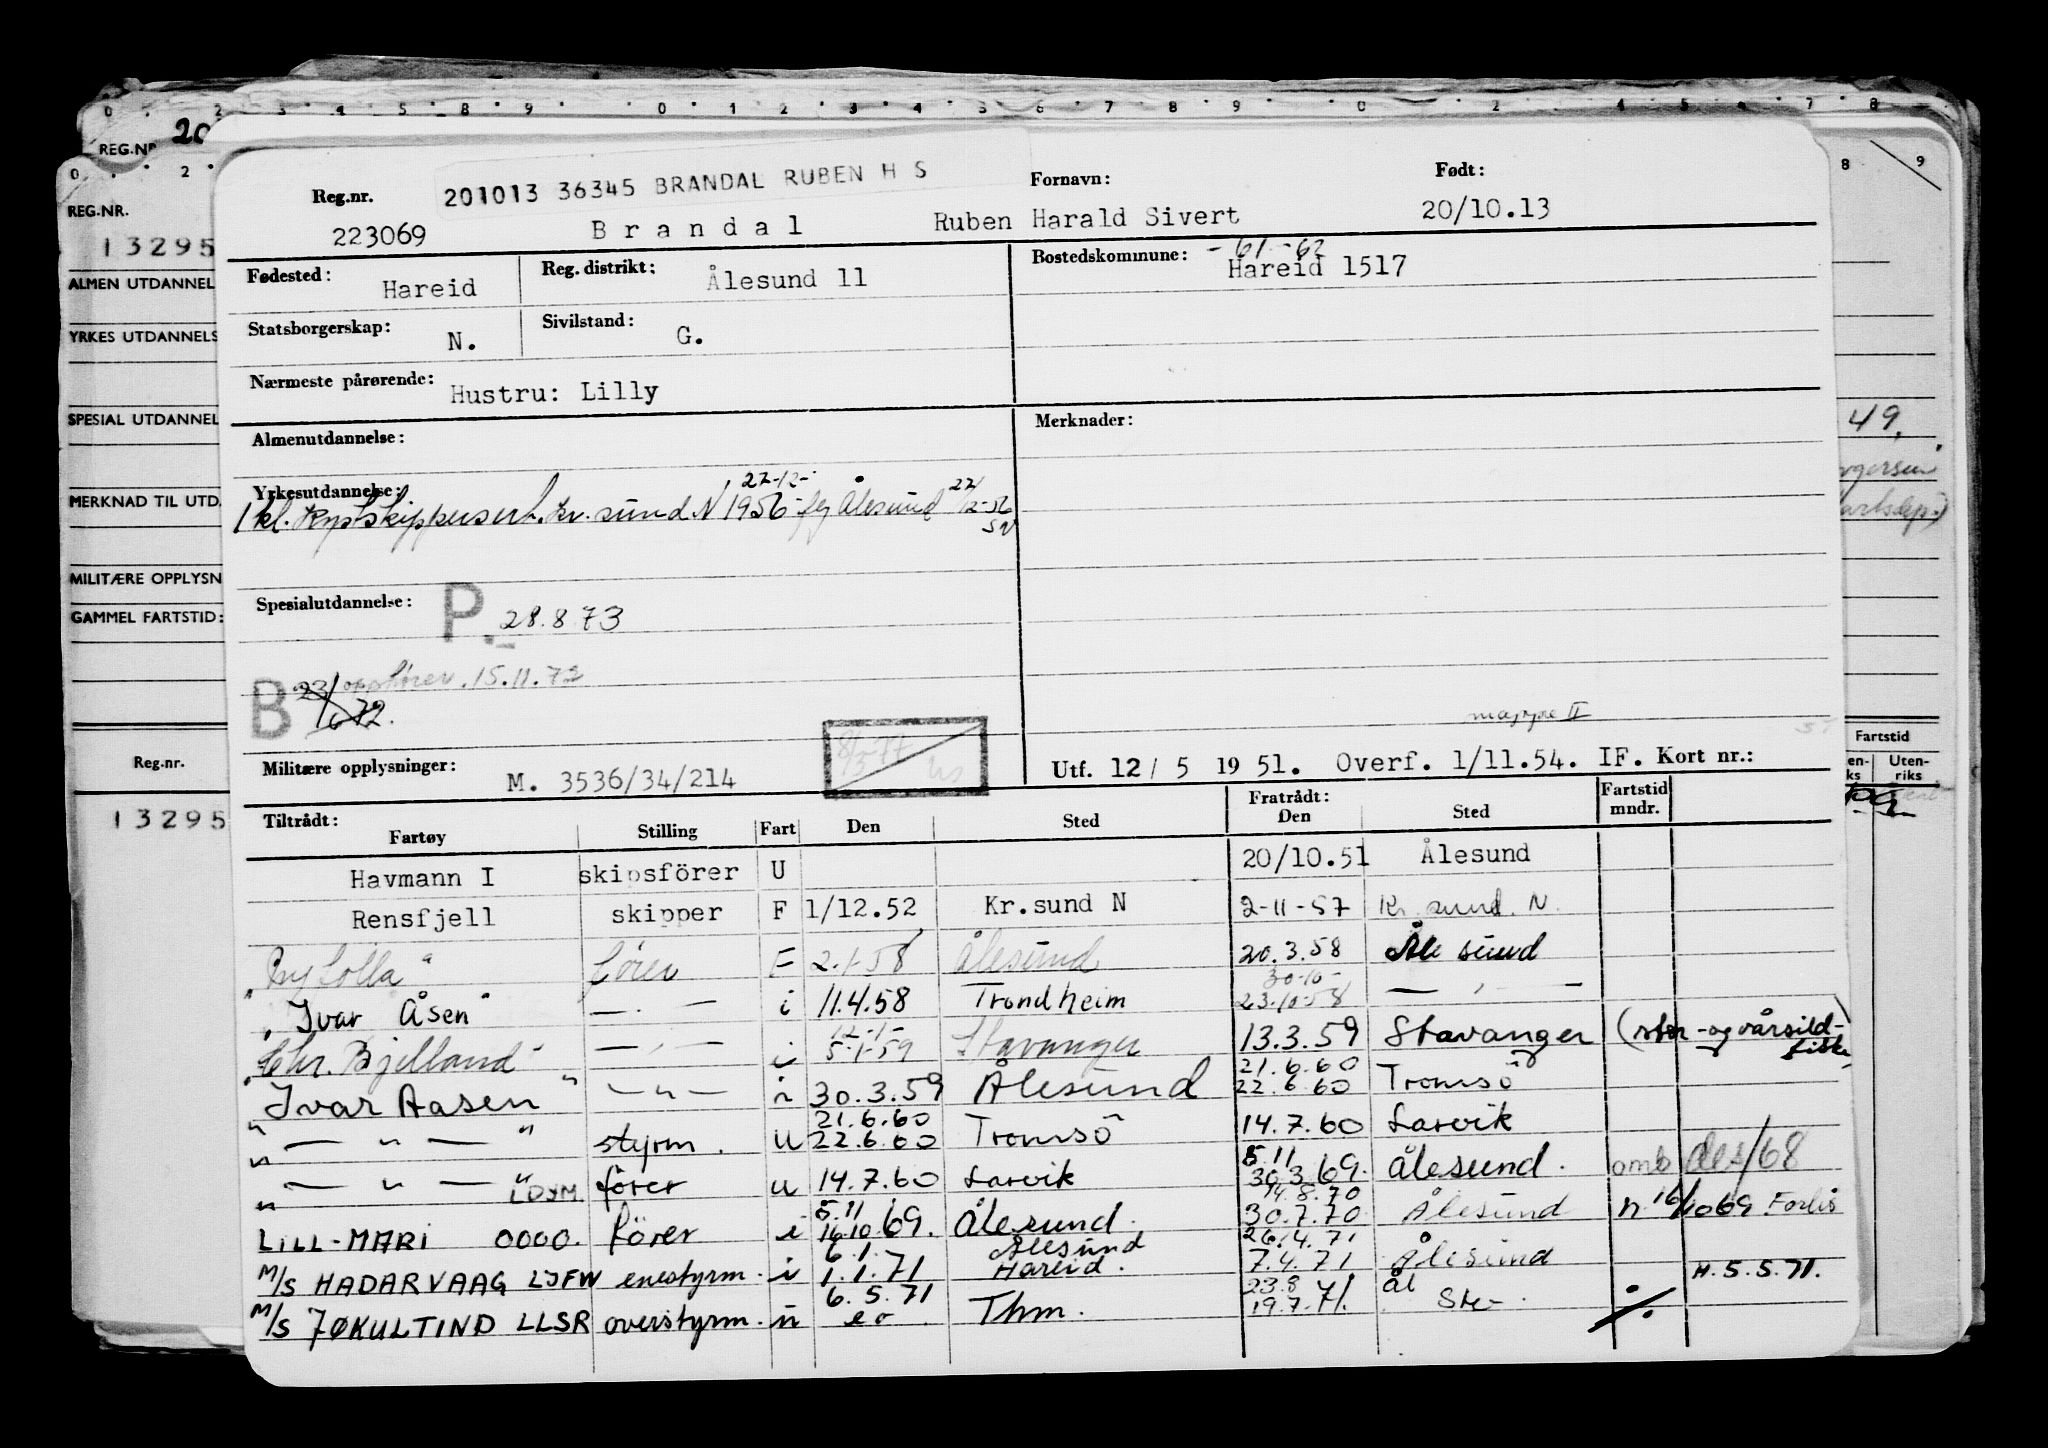 0 2 3 4 5 8 9 0 1 2 3 4 5 6 7 8 9 0 2 4 5 6 7 8
REG.NR 20
0 2 8 9
REG.NR.
13295
ALMEN UTDANNEL
YRKES UTDANNELS
SPESIAL UTDANNEL
MERKNAD TIL UTD.
MILITÆRE OPPLYSN
GAMMEL FARTSTID:
Reg.nr.
13295
49.
Fartstid
en- Uten-
ks riks
201013 36345 BRANDAL RUBEN H S
Reg.nr. Fornavn: Født:
223069 Brandal Ruben Harald Sivert 20/10.13
Fødested: Hareid Reg. distrikt: Ålesund 11 Bostedskommune: -61 -62
Hareid 1517
Statsborgerskap: N. Sivilstand: G.
Nærmeste pårørende: Hustru: Lilly
Almenutdannelse: Merknader:
Yrkesutdannelse: 22-12-
1 kl. Kystskippersert. Kr.sund N 1956 Ålesund 22/12-56
Spesialutdannelse: P. 28.8 73
B 23/6 72. opphører 15.11.72
mappe II
Militære opplysninger: M. 3536/34/214
Utf. 12/5 1951. Overf. 1/11.54. IF. Kort nr.:
Tiltrådt: Fratrådt: Fartstid
Fartøy Stilling Fart Den Sted Den Sted mndr.
Havmann I skipsförer U 20/10.51 Ålesund
Rensfjell skipper F 1/12.52 Kr.sund N 2-11-57 Kr.sund N.
förer F 2.1-58 Ålesund 20.3.58 Ålesund
30-10-
"Ivar Åsen" — " — i 11.4.58 Trondheim 23.10-58 — " —
12-1-
"Chr. Bjelland" — " — i 5-1-59 Stavanger 13.3.59 Stavanger (stor- og vårsild-
fiske)
21.6.60
"Ivar Aasen" — " — i 30.3.59 Ålesund 22.6.60 Tromsö
21.6.60
" — " — " styrm. U 22.6.60 Tromsö 14.7.60 Larvik
5.11
" — " — " LDYM förer U 14.7.60 Larvik 30.3.69. Ålesund. omb des/68
5.11 14.8.70
LILL-MARI OOOO. förer i 16.10.69. Ålesund. 30.7.70 Ålesund n. 16/10 69 Forlis
6.1. Ålesund 26.4.71
M/S HADARVAAG LJFW enestyrm. i 1.1.71 Hareid. 7.4.71 Ålesund H. 5.5.71.
6.5.71 23.8 Ål
M/S JØKULTIND LLSR overstyrm. u Thm. 19.7.71.